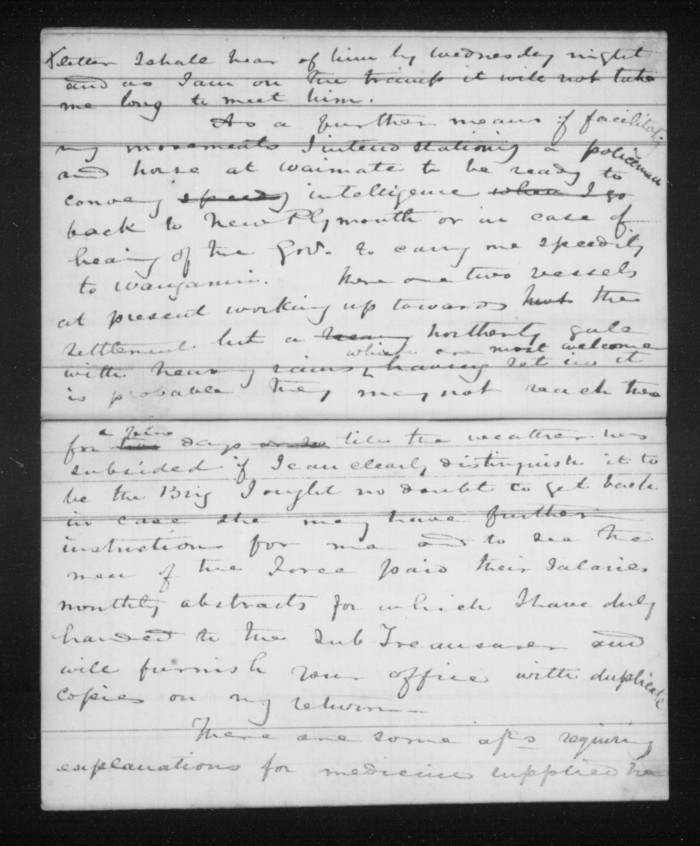 letter I shall hear of him by Wednesday night
and as I am on the tramp it will not take
me long to meet him.
As a further means of facilitatg
my movements I intend stationing a policeman
and horse at Waimate to be ready to
convey speedy intelligence when I go
back to New Plymouth or in case of
hearing of the Govr. to carry me speedily
to Wanganui. There are two vessels
at present working up towards but the
settlement but a heavy northerly gale
which are most welcome
with heavy rains having set in it
is probable they may not reach there
a few
for two days or so till the weather has
subsided if I can clearly distinguish it to
be the Brig I ought no doubt to get back
in case she may have further
instructions for me and to see the
men of the Force paid their salaries
monthly abstracts for which I have duly
handed to the Sub Treasurer and
will furnish your office with duplicate
copies on my return—
There are some a/cs requiring
explanations for medicine supplied